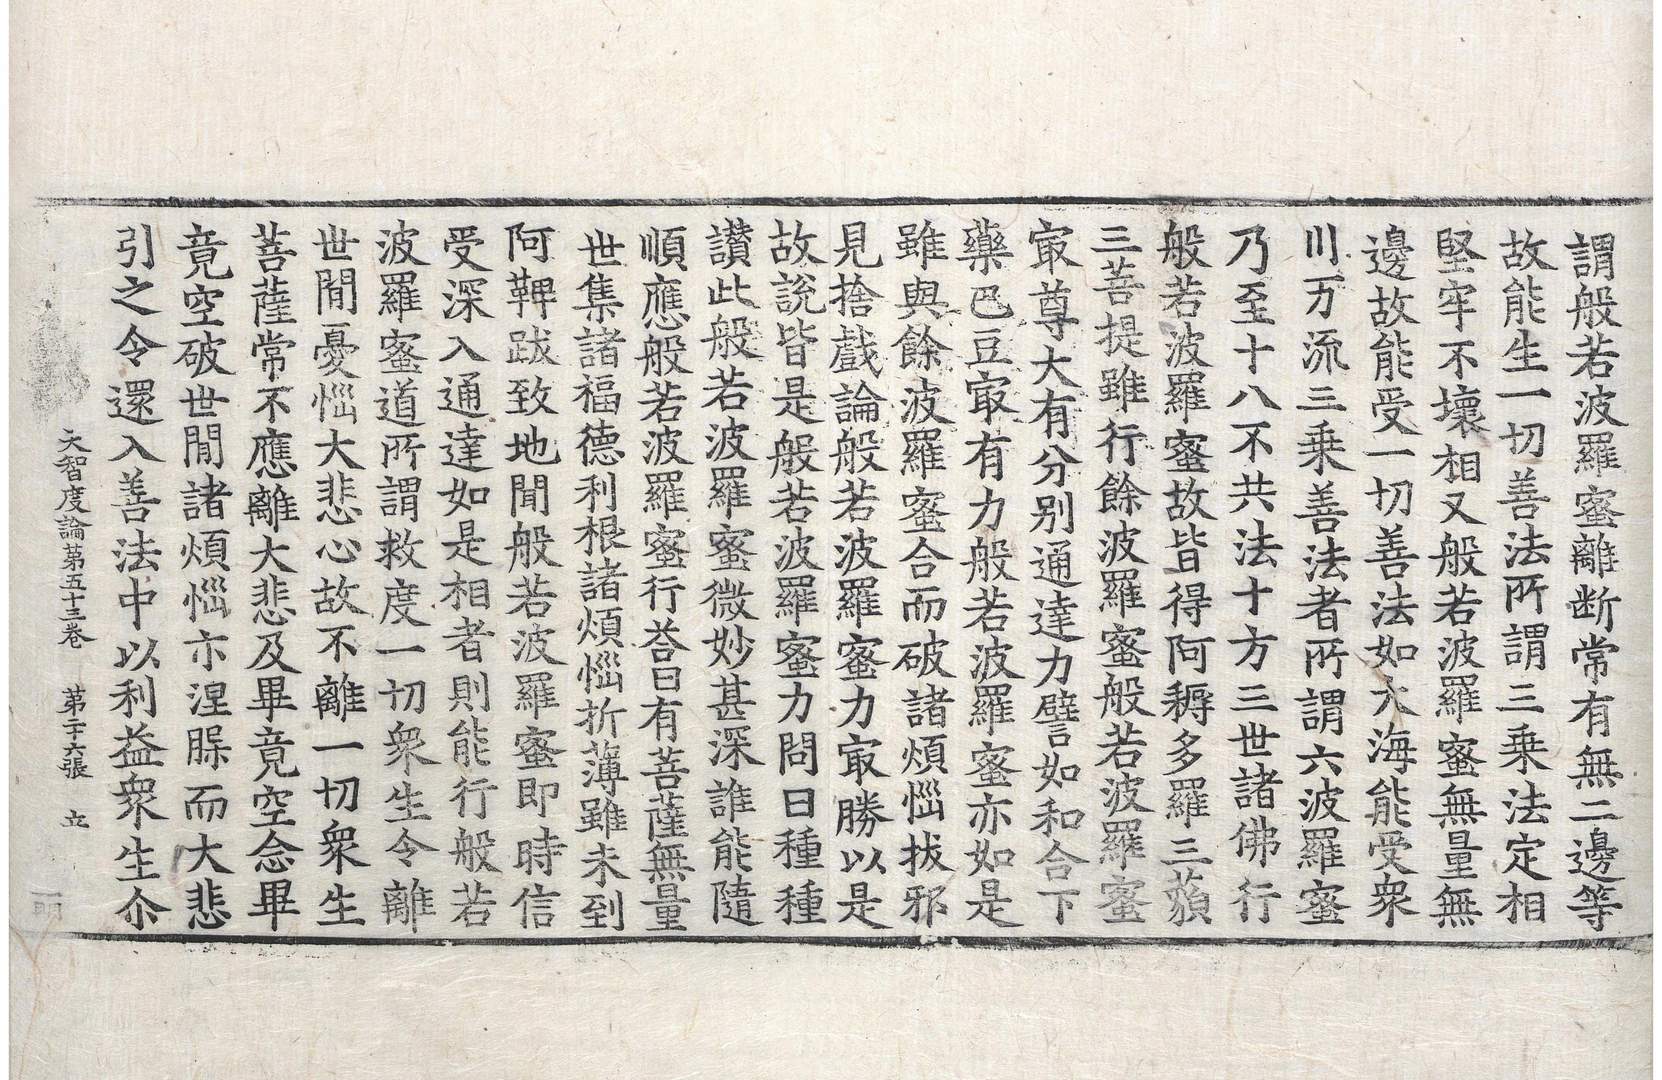 謂般若波羅蜜離断常有無二邊等
故能生一切善法所謂三乗法定相
堅牢不壞相又般若波羅蜜無量無
邊故能受一切善法如大海能受衆
川万流三乗善法者所謂六波羅蜜
乃至十八不共法十方三世諸佛行
般若波羅蜜故皆得阿耨多羅三藐
三菩提雖行餘波羅蜜般若波羅蜜
㝡尊大有分别通達力譬如和合下
藥巴豆㝡有力般若波羅蜜亦如是
雖與餘波羅蜜合而破諸煩惱拔邪
見捨戲論般若波羅蜜力㝡勝以是
故說皆是般若波羅蜜力問曰種種
讃此般若波羅蜜微妙甚深誰能隨
順應般若波羅蜜行荅曰有菩薩無量
世集諸福德利根諸煩惱折薄雖未到
阿鞞跋致地聞般若波羅蜜即時信
受深入通達如是相者則能行般若
波羅蜜道所謂救度一切衆生令離
世閒憂惱大悲心故不離一切衆生
菩薩常不應離大悲及畢竟空念畢
竟空破世閒諸煩惱亦涅槃而大悲
引之令還入善法中以利益衆生尒
大智度論第五十三卷　第二十六張　立